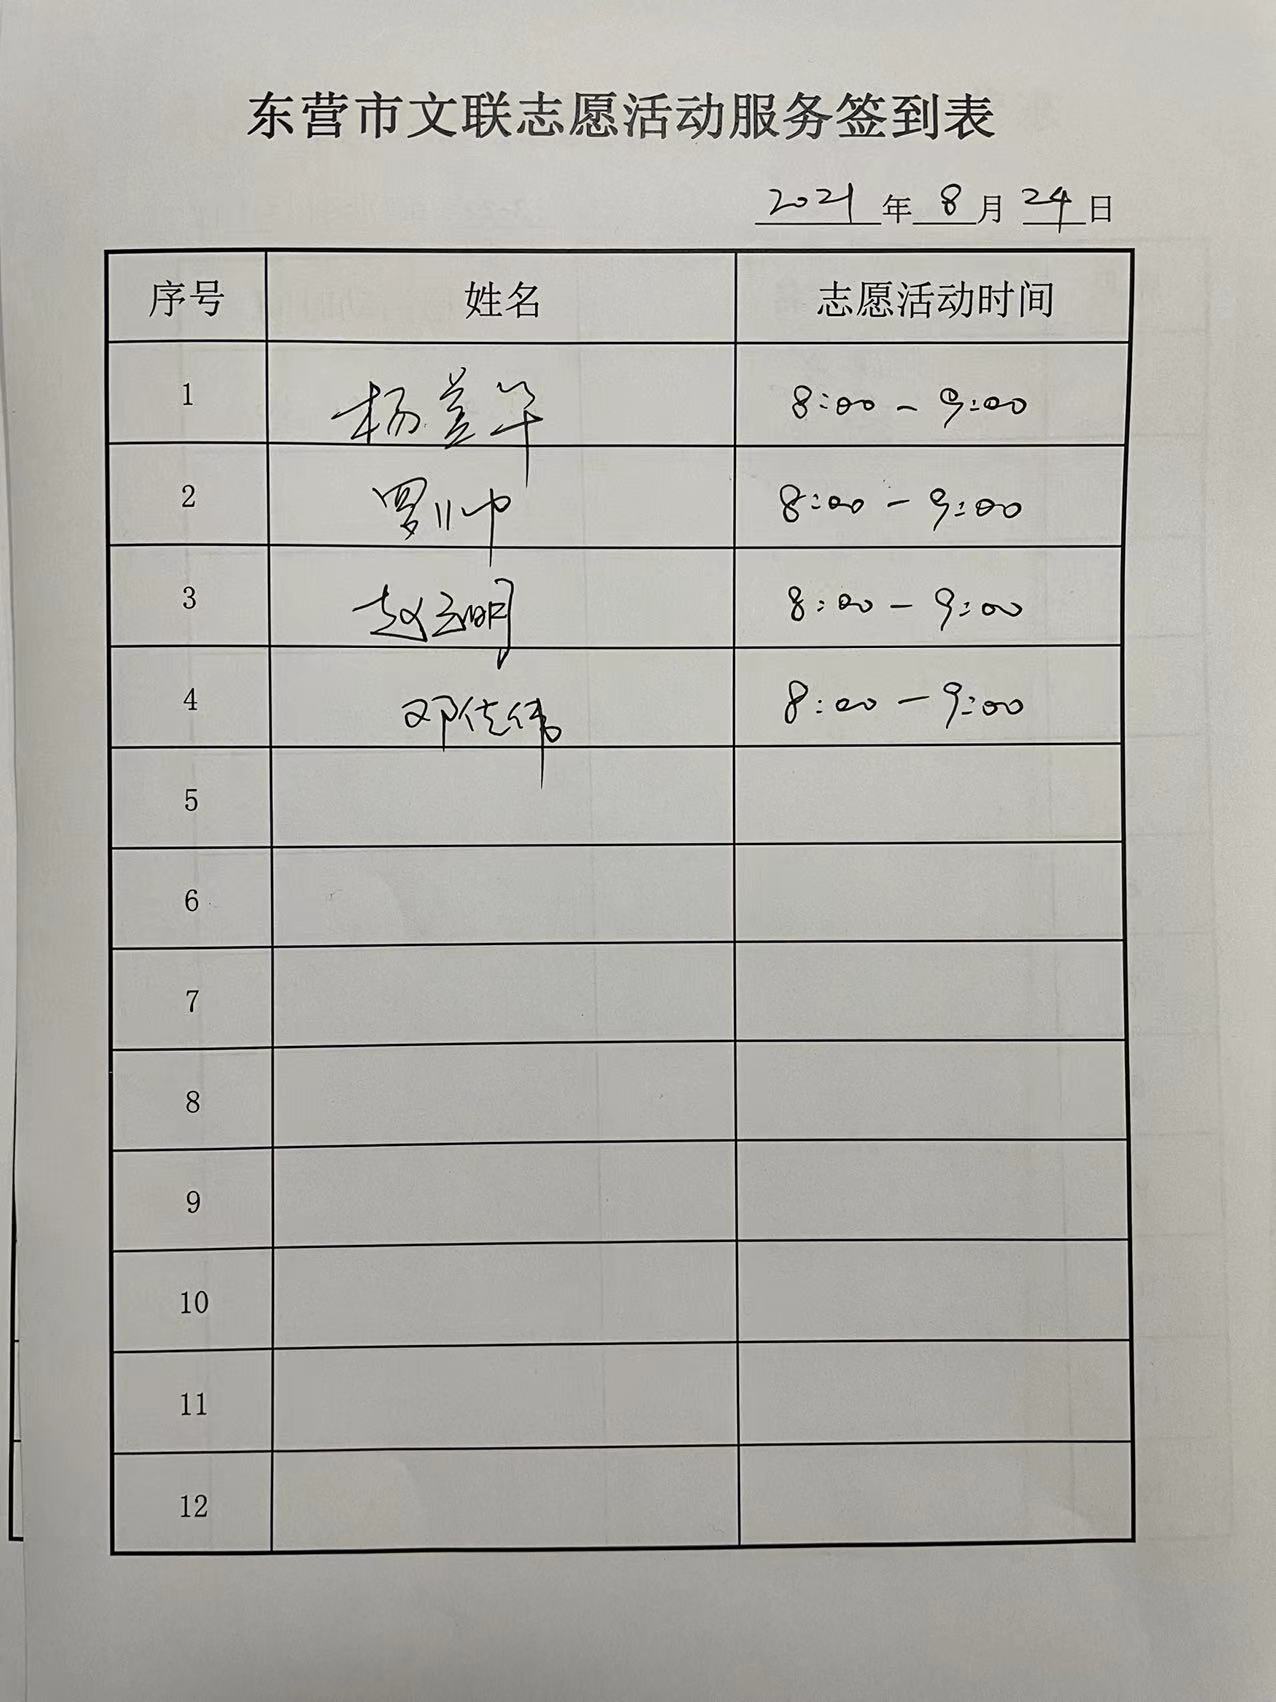 东营市文联志愿活动服务签到表
2021年8月24日
序号 姓名 志愿活动时间
1 杨兰华 8:00-9:00
2 罗帅 8:00-9:00
3 赵云明 8:00-9:00
4 邓佳伟 8:00-9:00
5
6
7
8
9
10
11
12